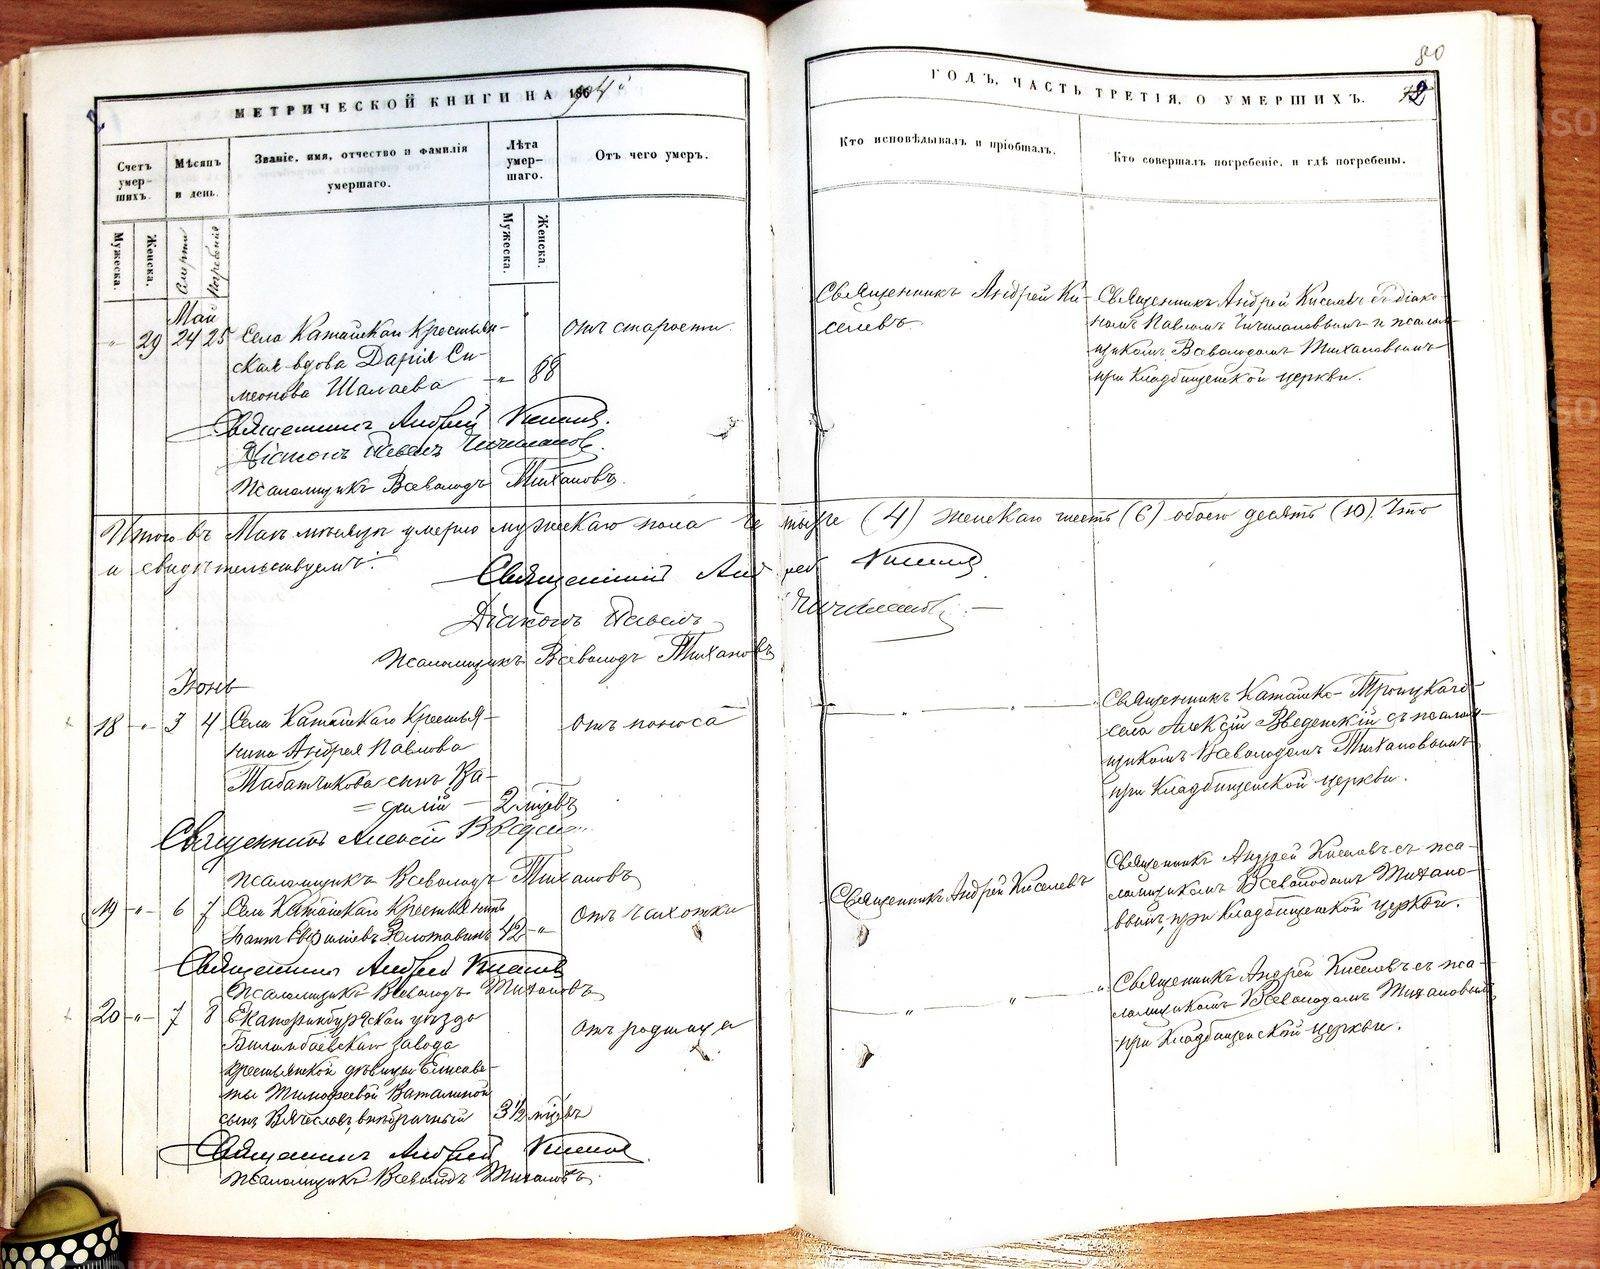 МЕТРИЧЕСКОЙ КНИГИ НА 1904 г
ГОДЪ, ЧАСТЬ ТРЕТІЯ, О УМЕРШИХЪ.
80
Счетъ умерших.
Мѣсяцъ и день.
Званіе, имя, отчество и фамилія умершаго.
Лѣта умер-шаго.
Отъ чего умеръ.
Кто исповѣдывалъ и пріобщалъ.
Кто совершалъ погребеніе, и гдѣ погребены.
Мужеска.
Женска.
Смерти
Погребенія
Мужеска.
Женска.
Май
29 24 25 Села Катайскаго Крестьян-
ская вдова Дарія Си-
меонова Шалаева 88
отъ старости
Священникъ Андрей Ки-
селевъ
Священникъ Андрей Киселевъ съ діако-
номъ Павломъ и псалом-
щикомъ Всеволодомъ Тихановымъ
при Кладбищенской церкви.
Священникъ Андрей Киселевъ.
Діаконъ Павелъ
Псаломщикъ Всеволодъ Тихановъ.
Итого въ Маѣ мѣсяцѣ умерло мужескаго пола четыре (4) женскаго шесть (6) обоего десять (10). Что
и свидѣтельствуемъ:
Священникъ Андрей Киселевъ
Діаконъ Павелъ
Псаломщикъ Всеволодъ Тихановъ
Іюнь
18 3 4 Села Катайскаго Крестья-
нина Андрея Павлова
Табатчикова сынъ Ва-
силій 2 мѣсяц.
отъ поноса
Священникъ Катайско-Троицкаго
села Алексій Введенскій съ псалом-
щикомъ Всеволодомъ Тихановымъ
при Кладбищенской церкви.
Священникъ Алексій Введенскій
Псаломщикъ Всеволодъ Тихановъ
19 6 7 Села Катайскаго Крестьянинъ
42
отъ чахотки
Священникъ Андрей Киселевъ
Священникъ Андрей Киселевъ съ пса-
ломщикомъ Всеволодомъ Тихано-
вымъ, при Кладбищенской церкви.
Священникъ Андрей Киселевъ
Псаломщикъ Всеволодъ Тихановъ
20 7 8 Екатеринбургскаго уѣзда
Билимбаевскаго завода
крестьянской дѣвицы Елисаве-
ты Тимофеевой Ваталиной
сынъ Вячеславъ, внѣбрачный 3½ мѣс.
отъ родимца
Священникъ Андрей Киселевъ съ пса-
ломщикомъ Всеволодомъ Тихановымъ
при Кладбищенской церкви.
Священникъ Андрей Киселевъ
Псаломщикъ Всеволодъ Тихановъ